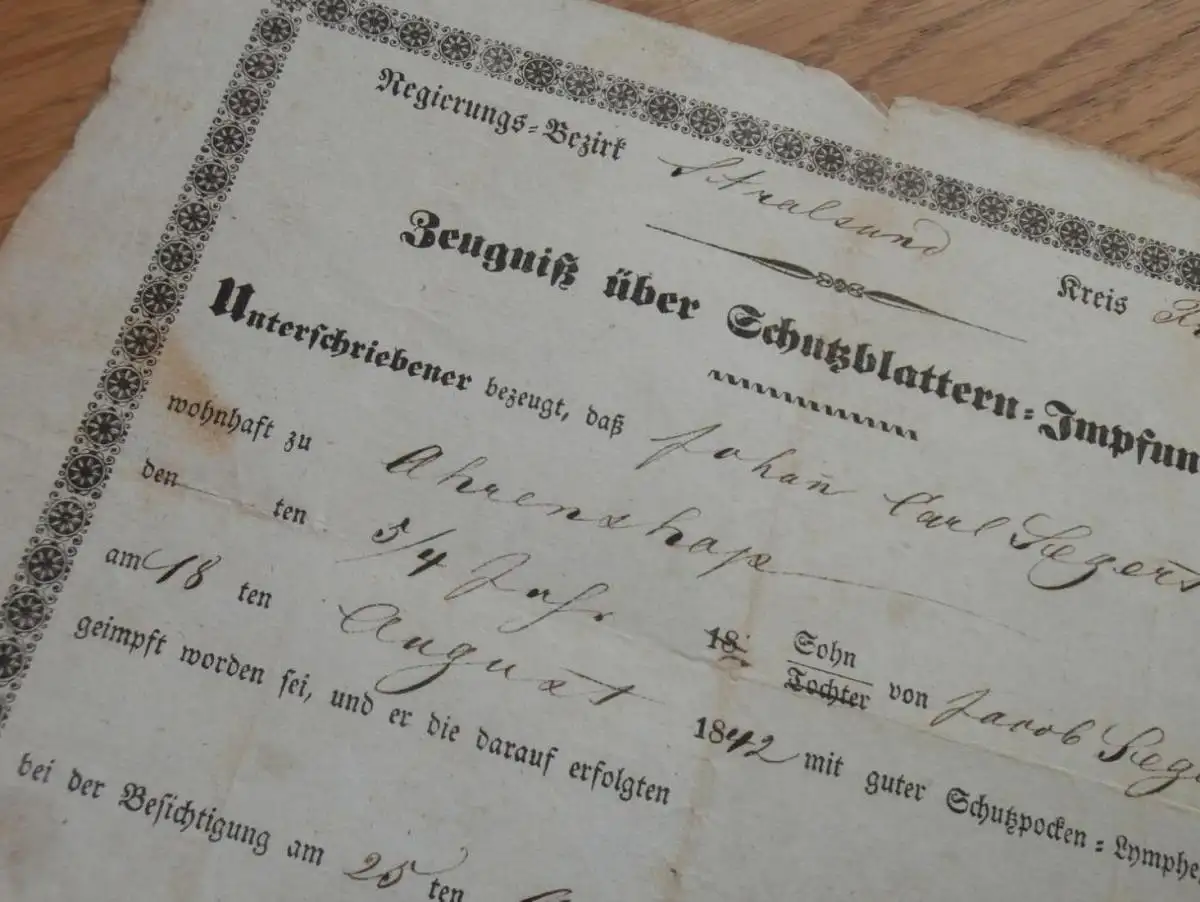 Regierungs-Bezirk Stralsund Kreis
Zeugniß über Schutzblattern-Impfun
Unterschriebener bezeugt, daß Johan̄ Carl Segert
wohnhaft zu Ahrenshap
den ten 5/4 Jahr 18 Sohn Tochter von Jacob Seg
am 18 ten August 1842 mit guter Schutzpocken-Lymphe
geimpft worden sei, und er die darauf erfolgten
bei der Besichtigung am 25 ten